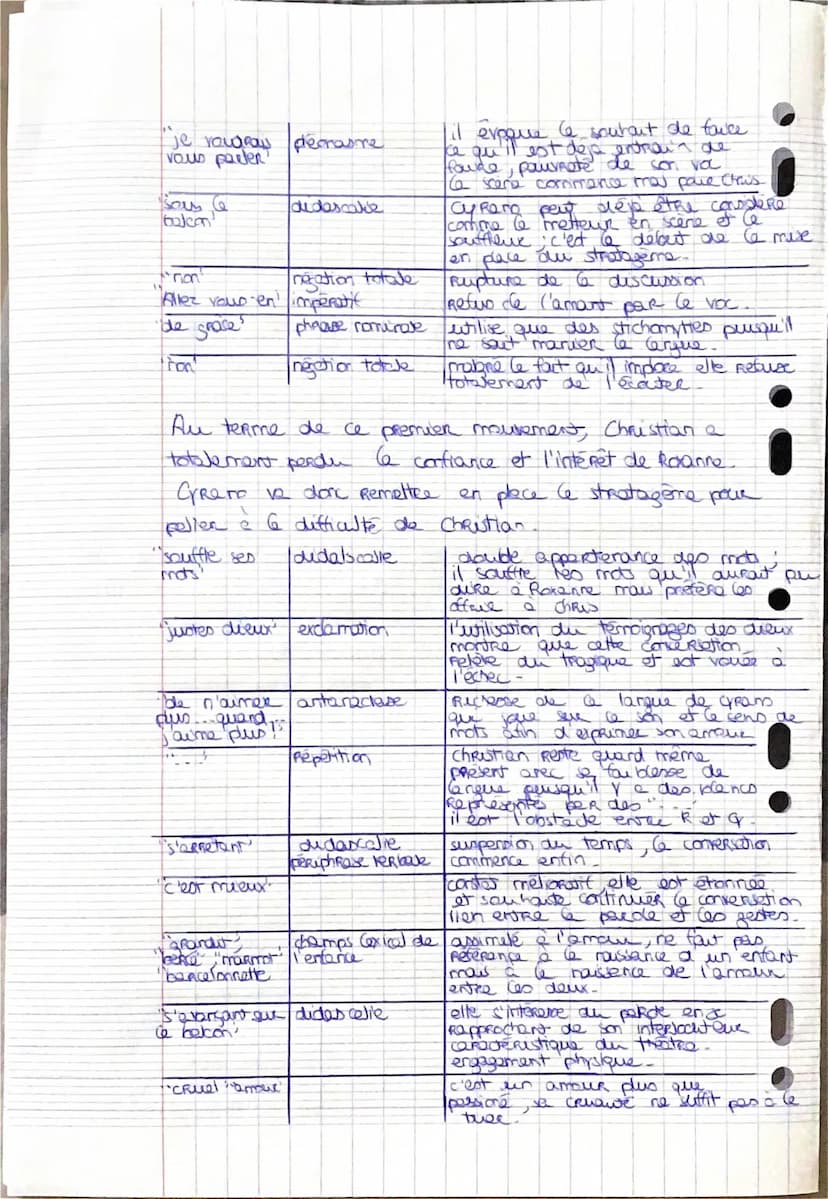 "je voudrais
vous parler"
pléonasme
il évoque le souhait de faire
ce qu'il est déjà entrain de
faire, pauvreté de son voc
la scène commence mal pour Chris
"sous le
balcon"
didascalie
Cyrano peut déjà être considéré
comme le metteur en scène et le
souffleur ; c'est le début de la mise
en place du stratagème.
"non"
négation totale
Rupture de la discussion
"Allez vous-en"
impératif
Refus de l'amant par le voc.
"de grâce"
phrase nominale
utilise que des stichomyties puisqu'il
ne sait manier la langue.
"non"
négation totale
malgré le fait qu'il implore elle refuse
totalement de l'écouter.
Au terme de ce premier mouvement, Christian a
totalement perdu la confiance et l'intérêt de Roxanne.
Cyrano va donc remettre en place le stratagème pour
palier à la difficulté de Christian.
"souffle ses
mots"
didalscalie
double appartenance des mots ;
il souffle les mots qu'il aurait pu
dire à Roxanne mais préfère les
offrir à Chris
"justes dieux"
exclamation
l'utilisation du témoignages des dieux
montre que cette conversation
relève du tragique et est vouée à
l'échec -
"de n'aimer
plus...quand
j'aime plus!"
antanaclase
Richesse de la langue de Cyrano
qui joue sur le son et le sens de
mots afin d'exprimer son amour
"..."
Répétition
Christian reste quand même
présent avec sa faiblesse de
langue puisqu'il y a des blancs
représentés par des "..."
il est l'obstacle entre R et C.
"s'arrêtant"
didascalie
périphrase verbale
suspension du temps, la conversation
commence enfin.
"c'est mieux"
mélioratif, elle est étonnée
et souhaite continuer la conversation
lien entre la parole et les gestes.
"grandit",
"bébé", "marmot"
"barcelonnette
champs lexical de
l'enfance
assimilé à l'amour, ne fait pas
référence à la naissance d'un enfant
mais à la naissance de l'amour
entre les deux.
"s'avançant sur
le balcon"
didascalie
elle s'intéresse au parole en se
rapprochant de son interlocuteur
caractéristique du théâtre.
engagement physique.
"cruel" "amour"
c'est un amour plus que
passioné, sa cruauté ne suffit pas à le
tuer.